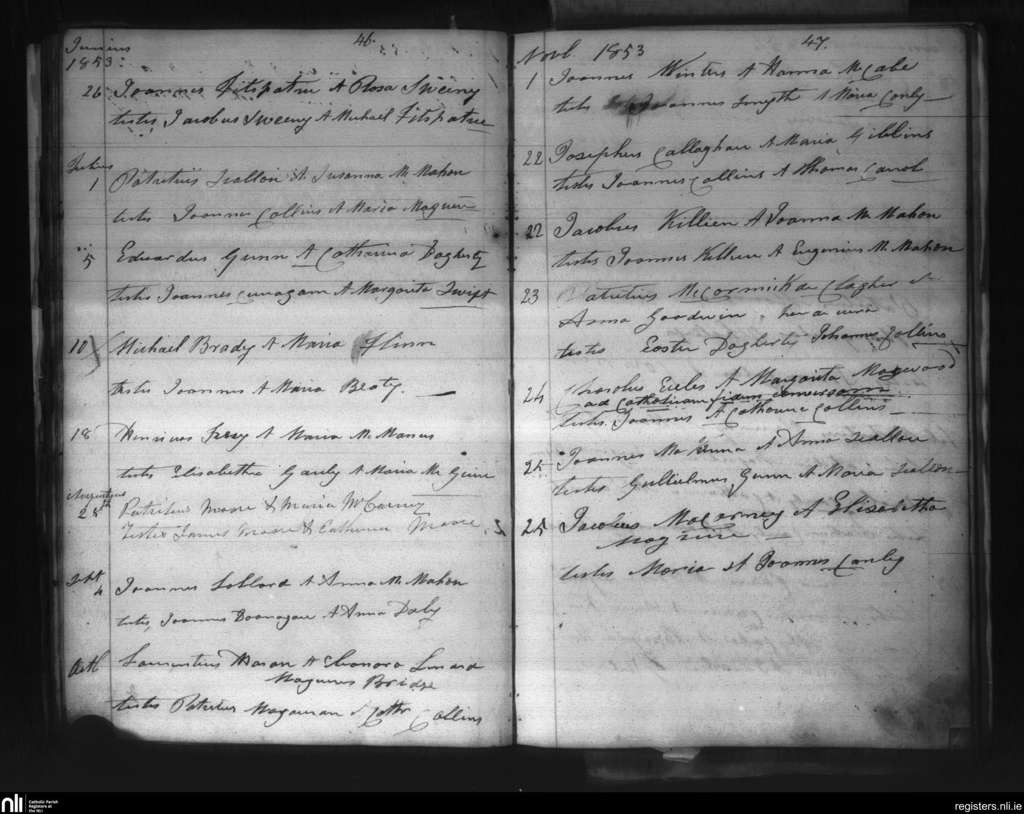 Junius
1853:
46.
26 Joannes Fitspatric At Rosa Sweeny
testes Jacobus Sweeny At Michael Fitspatric
Julius
1 Patritius At Susanna Mc Mahon
testes Joannes Collins At Maria
5 Eduardus Gunn At Catharina Dagherty
testes Joannes At Margarita Swift
10 Michael Brady At Maria Flinn
testes Joannes At Maria Beaty.
18 At Maria Mc Manus
testes Elisabetha Ganly At Maria Mc Guire
Augustus
28th Patritius Moore & Maria McCarney
Testes James Moore & Catherine Moore
Sept
4 Joannes At Anna Mc Mahon
testes, Joannes At Anna
Octb Laurentius Mason At Eleonora
Maguires Bridge
testes Patritius & Cathr Collins
Novb 1853
47.
1 Joannes Winters At Hanna McCabe
testes Joannes Smyth At Maria Conly
22 Josephus Callaghan At Maria Gibbins
testes Joannes Collins At Thomas Carrol
22 Jacobus Killien At Joanna Mc Mahon
testes Joannes Killien At Eugenius Mc Mahon
23 Patritius McCormick de Clogher At
Anna Goodwin
testes Easter Dagherty Johannes Collins
24 Carolus Eccles At Margarita
ad Catholicam fidem conversa
testes Joannes At Catherine Collins
25 Joannes At Anna
testes Gulielmus Gunn At Maria
25 Jacobus McCorney At Elisabetha
Magwire
testes Maria At Joannes Conly
nli
Catholic Parish
Registers at
the NLI
registers.nli.ie